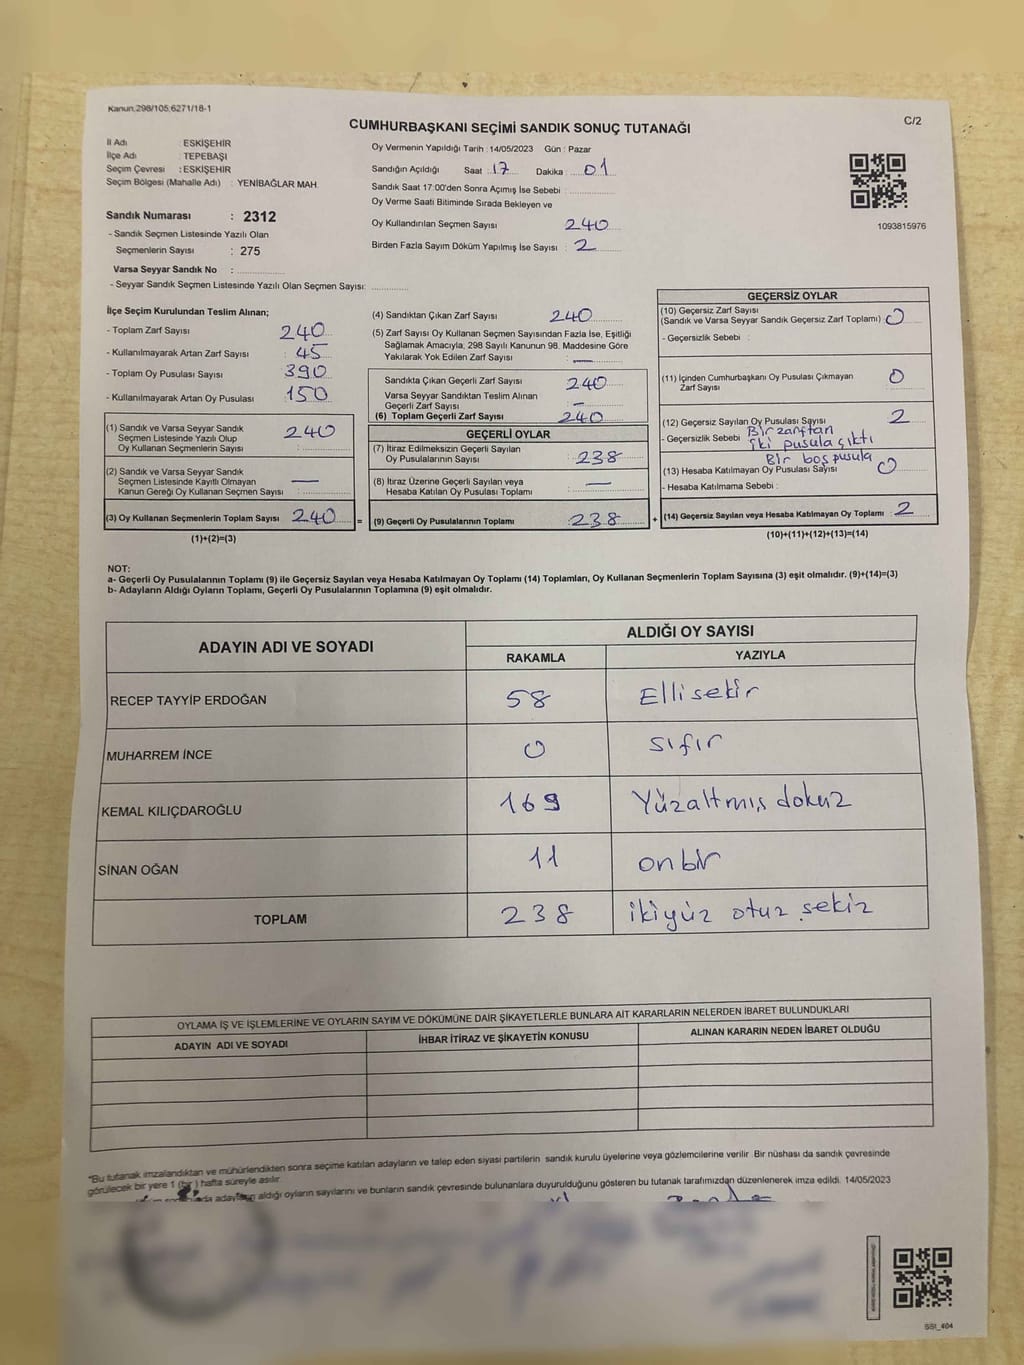 Kanun.298/105,6271/18-1
C/2
CUMHURBAŞKANI SEÇİMİ SANDIK SONUÇ TUTANAĞI
İl Adı : ESKİŞEHİR
İlçe Adı : TEPEBAŞI
Seçim Çevresi : ESKİŞEHİR
Seçim Bölgesi (Mahalle Adı) : YENİBAĞLAR MAH.
Sandık Numarası : 2312
- Sandık Seçmen Listesinde Yazılı Olan
Seçmenlerin Sayısı : 275
Varsa Seyyar Sandık No :
- Seyyar Sandık Seçmen Listesinde Yazılı Olan Seçmen Sayısı:
Oy Vermenin Yapıldığı Tarih : 14/05/2023 Gün : Pazar
Sandığın Açıldığı Saat : 17 Dakika 01
Sandık Saat 17:00'den Sonra Açımış İse Sebebi :
Oy Verme Saati Bitiminde Sırada Bekleyen ve
Oy Kullandırılan Seçmen Sayısı 240
Birden Fazla Sayım Döküm Yapılmış İse Sayısı : 2
1093815976
İlçe Seçim Kurulundan Teslim Alınan;
- Toplam Zarf Sayısı 240
- Kullanılmayarak Artan Zarf Sayısı : 45
- Toplam Oy Pusulası Sayısı : 390
- Kullanılmayarak Artan Oy Pusulası : 150
(1) Sandık ve Varsa Seyyar Sandık
Seçmen Listesinde Yazılı Olup
Oy Kullanan Seçmenlerin Sayısı : 240
(2) Sandık ve Varsa Seyyar Sandık
Seçmen Listesinde Kayıtlı Olmayan
Kanun Gereği Oy Kullanan Seçmen Sayısı : —
(3) Oy Kullanan Seçmenlerin Toplam Sayısı 240 =
(1)+(2)=(3)
(4) Sandıktan Çıkan Zarf Sayısı 240
(5) Zarf Sayısı Oy Kullanan Seçmen Sayısından Fazla İse, Eşitliği
Sağlamak Amacıyla, 298 Sayılı Kanunun 98. Maddesine Göre
Yakılarak Yok Edilen Zarf Sayısı : —
Sandıkta Çıkan Geçerli Zarf Sayısı 240
Varsa Seyyar Sandıktan Teslim Alınan
Geçerli Zarf Sayısı : —
(6) Toplam Geçerli Zarf Sayısı 240
GEÇERLİ OYLAR
(7) İtiraz Edilmeksizin Geçerli Sayılan
Oy Pusulalarının Sayısı : 238
(8) İtiraz Üzerine Geçerli Sayılan veya
Hesaba Katılan Oy Pusulası Toplamı : —
(9) Geçerli Oy Pusulalarının Toplamı : 238 +
GEÇERSİZ OYLAR
(10) Geçersiz Zarf Sayısı
(Sandık ve Varsa Seyyar Sandık Geçersiz Zarf Toplamı) : 0
- Geçersizlik Sebebi :
(11) İçinden Cumhurbaşkanı Oy Pusulası Çıkmayan
Zarf Sayısı 0
(12) Geçersiz Sayılan Oy Pusulası Sayısı 2
- Geçersizlik Sebebi Bir zarftan
iki pusula çıktı
Bir boş pusula
(13) Hesaba Katılmayan Oy Pusulası Sayısı 0
- Hesaba Katılmama Sebebi :
(14) Geçersiz Sayılan veya Hesaba Katılmayan Oy Toplamı : 2
(10)+(11)+(12)+(13)=(14)
NOT:
a- Geçerli Oy Pusulalarının Toplamı (9) ile Geçersiz Sayılan veya Hesaba Katılmayan Oy Toplamı (14) Toplamları, Oy Kullanan Seçmenlerin Toplam Sayısına (3) eşit olmalıdır. (9)+(14)=(3)
b- Adayların Aldığı Oyların Toplamı, Geçerli Oy Pusulalarının Toplamına (9) eşit olmalıdır.
ADAYIN ADI VE SOYADI ALDIĞI OY SAYISI
RAKAMLA YAZIYLA
RECEP TAYYİP ERDOĞAN 58 Elli sekiz
MUHARREM İNCE 0 sıfır
KEMAL KILIÇDAROĞLU 169 Yüzaltmış dokuz
SİNAN OĞAN 11 on bir
TOPLAM 238 ikiyüz otuz sekiz
OYLAMA İŞ VE İŞLEMLERİNE VE OYLARIN SAYIM VE DÖKÜMÜNE DAİR ŞİKAYETLERLE BUNLARA AİT KARARLARIN NELERDEN İBARET BULUNDUKLARI
ADAYIN ADI VE SOYADI İHBAR İTİRAZ VE ŞİKAYETİN KONUSU ALINAN KARARIN NEDEN İBARET OLDUĞU
*Bu tutanak imzalandıktan ve mühürlendikten sonra seçime katılan adayların ve talep eden siyasi partilerin sandık kurulu üyelerine veya gözlemcilerine verilir. Bir nüshası da sandık çevresinde
görülecek bir yere 1 (bir) hafta süreyle asılır.
adayların aldığı oyların sayılarını ve bunların sandık çevresinde bulunanlara duyurulduğunu gösteren bu tutanak tarafımızdan düzenlenerek imza edildi. 14/05/2023
SSt_404